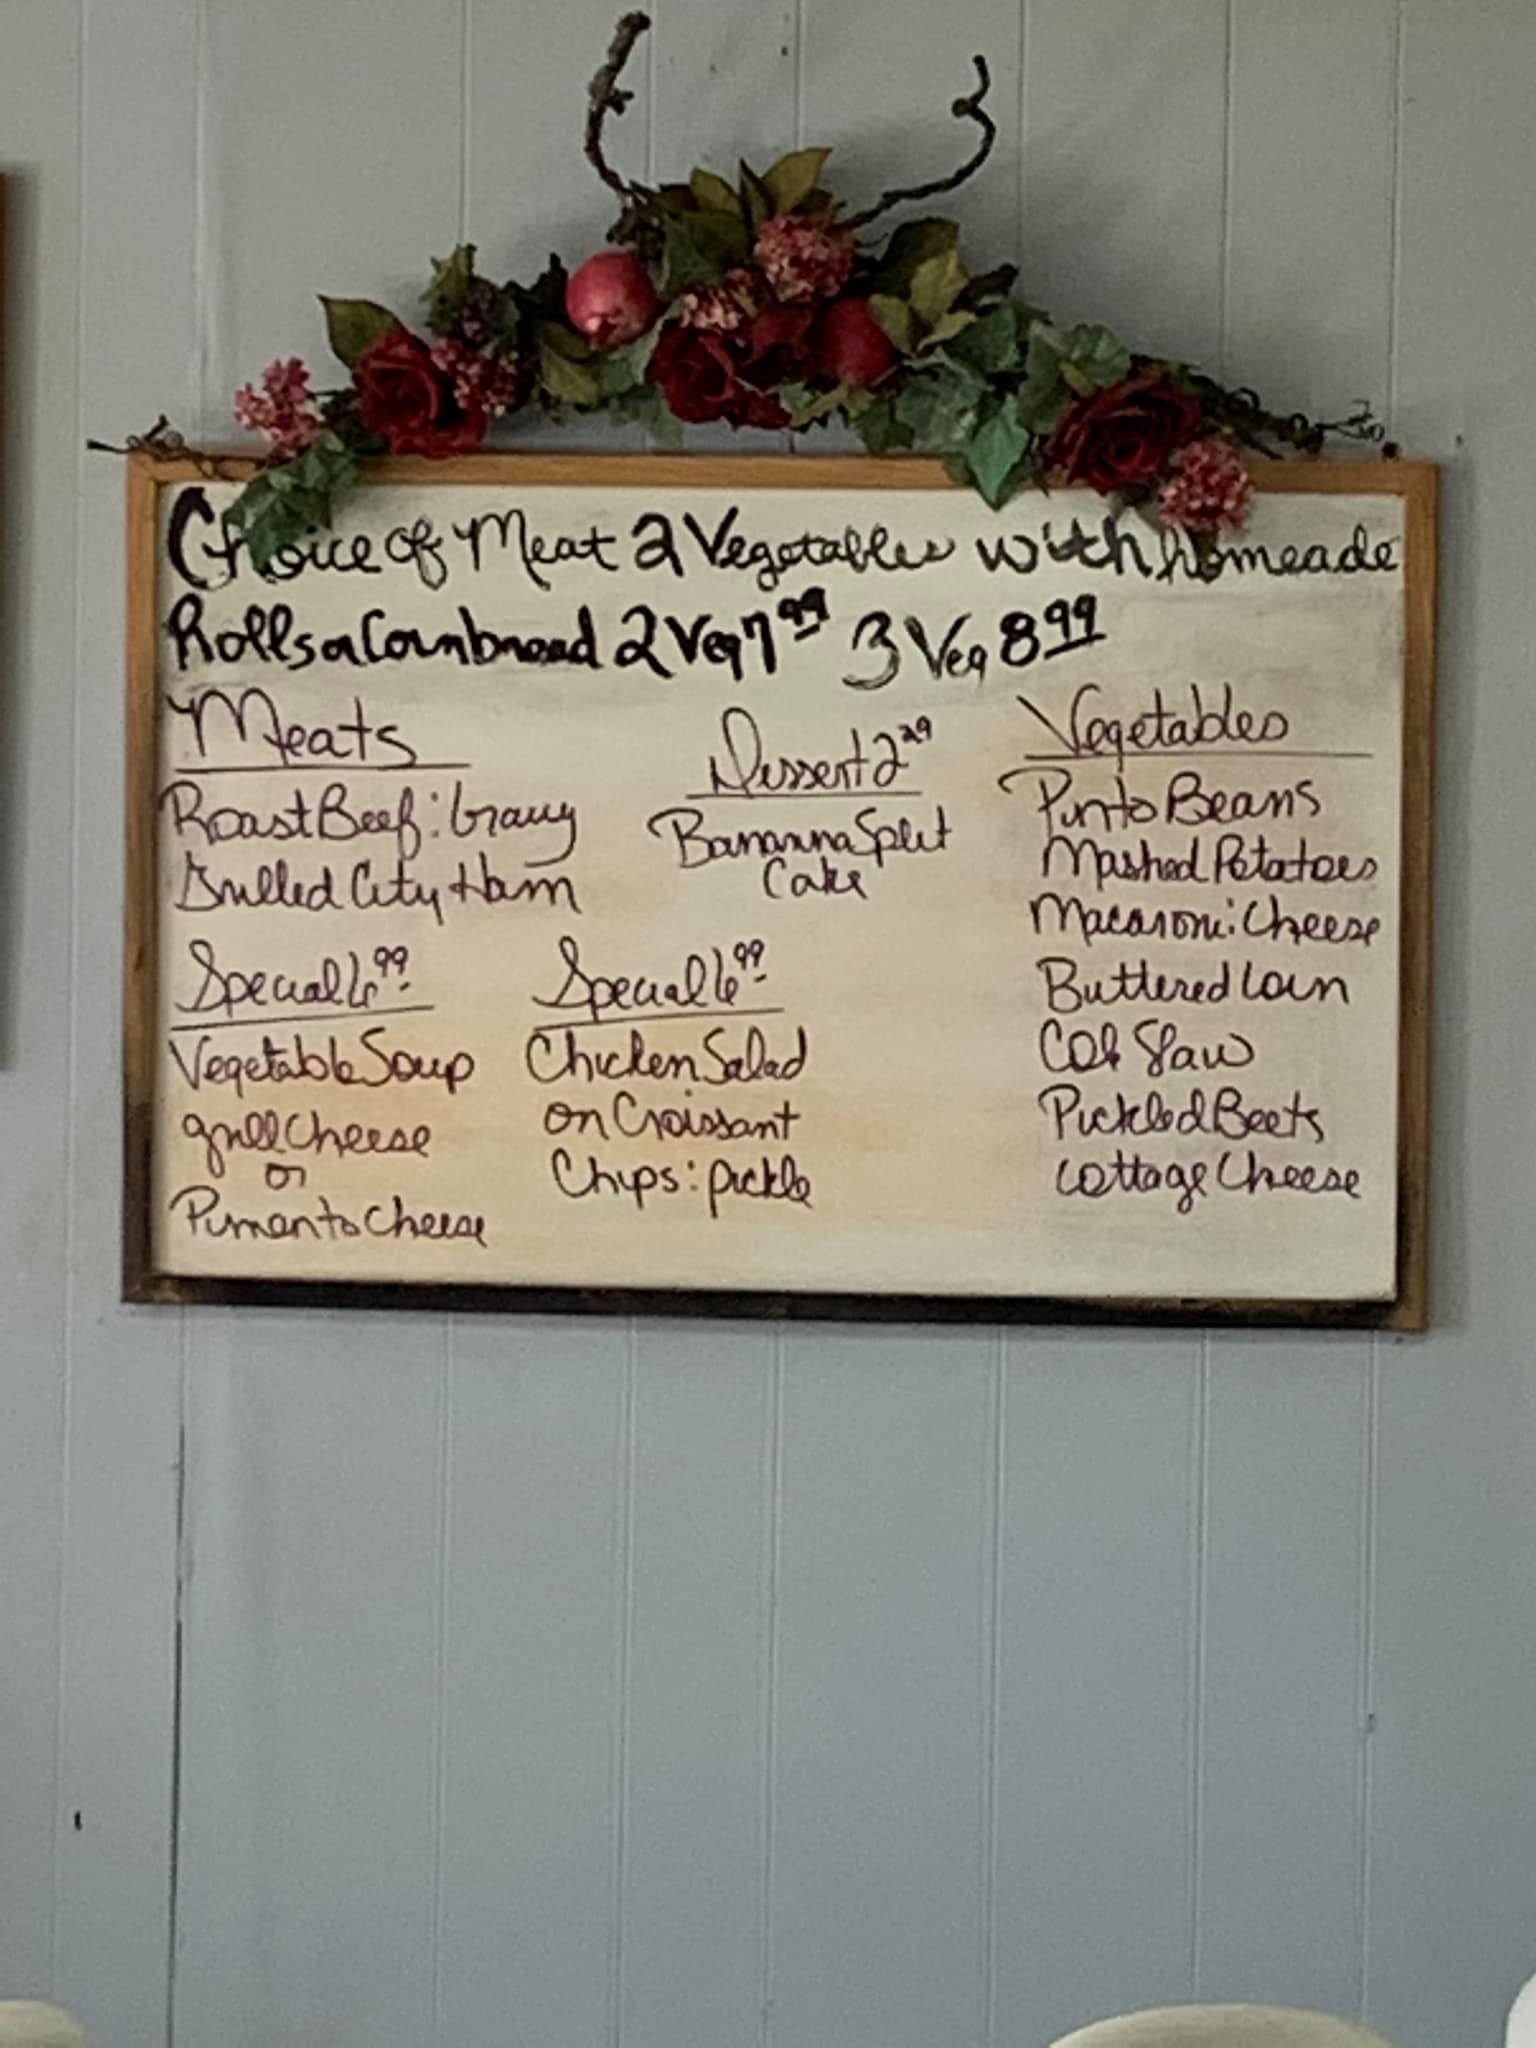 Choice of Meat 2 Vegetables with homeade
Rolls or Cornbread 2 Veg 7.99 3 Veg 8.99
Meats
Roast Beef : Gravy
Grilled City Ham
Dessert 2.29
Bananna Split
Cake
Vegetables
Pinto Beans
Mashed Potatoes
Macaroni : Cheese
Buttered Corn
Cole Slaw
Pickled Beets
Cottage Cheese
Special 6.99
Vegetable Soup
grill Cheese
or
Pimento Cheese
Special 6.99
Chicken Salad
on Croissant
Chips : pickle